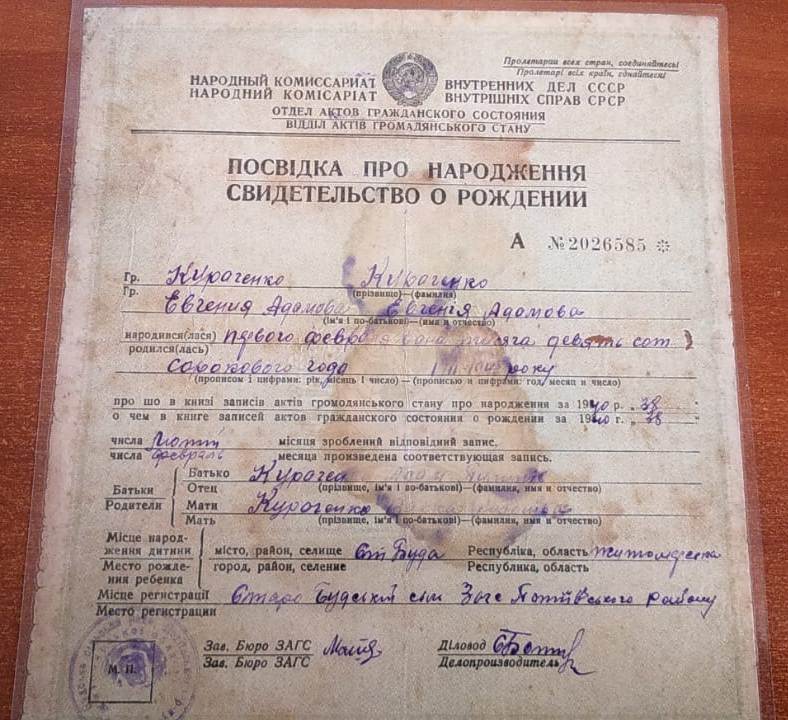 Пролетарии всех стран, соединяйтесь!
Пролетарі всіх країн, єднайтеся!
НАРОДНЫЙ КОМИССАРИАТ ВНУТРЕННИХ ДЕЛ СССР
НАРОДНИЙ КОМІСАРІАТ ВНУТРІШНІХ СПРАВ СРСР
ОТДЕЛ АКТОВ ГРАЖДАНСКОГО СОСТОЯНИЯ
ВІДДІЛ АКТІВ ГРОМАДЯНСЬКОГО СТАНУ
ПОСВІДКА ПРО НАРОДЖЕННЯ
СВИДЕТЕЛЬСТВО О РОЖДЕНИИ
А №2026585
Гр. Кураченко Кураченко
Гр. (прізвище)—(фамилия)
Евгения Адамова Евгенія Адамова
(ім'я і по-батькові)—(имя и отчество)
народився(лася) первого февраля тисяча девять сот
родился(лась)
сорокового года року
(прописом і цифрами: рік, місяць і число)—(прописью и цифрами: год, месяц и число)
про що в книзі записів актів громодянського стану про народження за 1940 р. 38
о чем в книге записей актов гражданского состояния о рождении за 1940 г. 38
числа місяця зроблений відповідний запис.
числа февраль месяца произведена соответствующая запись.
Батько
Отец (прізвище, ім'я і по-батькові)—(фамилия, имя и отчество)
Батьки
Родители
Мати Кураченко
Мать (прізвище, ім'я і по-батькові)—(фамилия, имя и отчество)
Місце народ-
ження дитини місто, район, селище Ст Буда Республіка, область
Место рожде- город, район, селение Республика, область
ния ребенка
Місце регистрації Старо Будський Загс району
Место регистрации
Зав. Бюро ЗАГС Діловод
Зав. Бюро ЗАГС Делопроизводитель
М. П.